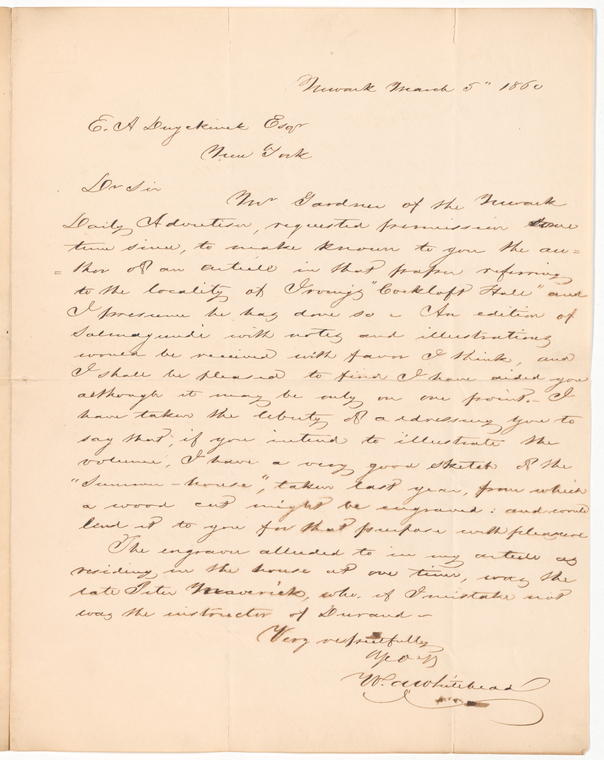 Newark March 5" 1860
E. A Duyckinck Esqr
New York
Dr Sir
Mr Gardner of the Newark
Daily Advertiser, requested permission some
time since, to make known to you the au=
=thor of an article in that paper referring
to the locality of Irving's "Cockloft Hall" and
I presume he has done so - An edition of
Salmagundi with notes and illustrations
would be received with favor I think, and
I shall be pleased to find I have aided you
although it may be only on one point - I
have taken the liberty of addressing you to
say that, if you intend to illustrate the
volume, I have a very good sketch of the
"Summer-house", taken last year, from which
a wood cut might be engraved: and would
lend it to you for that purpose with pleasure
The engraver alluded to in my article as
residing in the house at one time, was the
late Peter Maverick, who, if I mistake not
was the instructor of Durand -
Very respectfully
W. A Whitehead